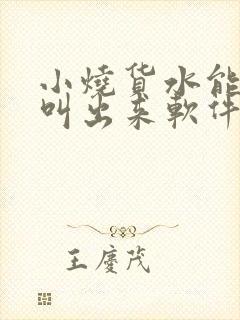 小燒货水能
叫出来軟件
王慶茂